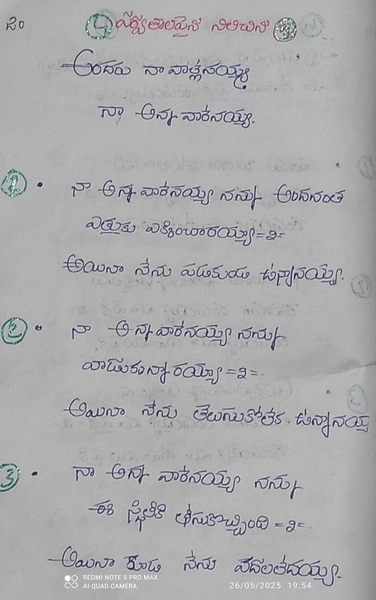 20 పర్వతాలపైన నిలిచిన
అందరు నా వాళ్లేనయ్య
నా అన్న వారేనయ్య.
1. నా అన్న వారేనయ్య నన్ను అందనంత
ఎత్తుకు ఎక్కించారయ్యా =2=
అయినా నేను పడకుండ ఉన్నానయ్య.
2. నా అన్న వారేనయ్య నన్ను
వాడుకున్నారయ్యా =2=.
అయినా నేను తెలుసుకోలేక ఉన్నానయ్య
3. నా అన్న వారేనయ్య నన్ను
ఈ స్థితికి తీసుకొచ్చింది =2=.
అయినా కూడ నేను వదలలేదయ్య.
REDMI NOTE 9 PRO MAX
AI QUAD CAMERA
26/05/2025 19:54